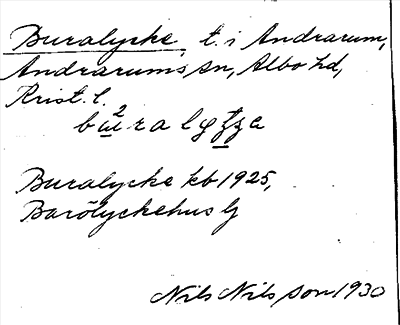 Buralycke, t. i Andrarum,
Andrarums sn, Albo hd,
Krist. l.
Buralycke kb 1925,
Barölyckehus
Nils Nilsson 1930